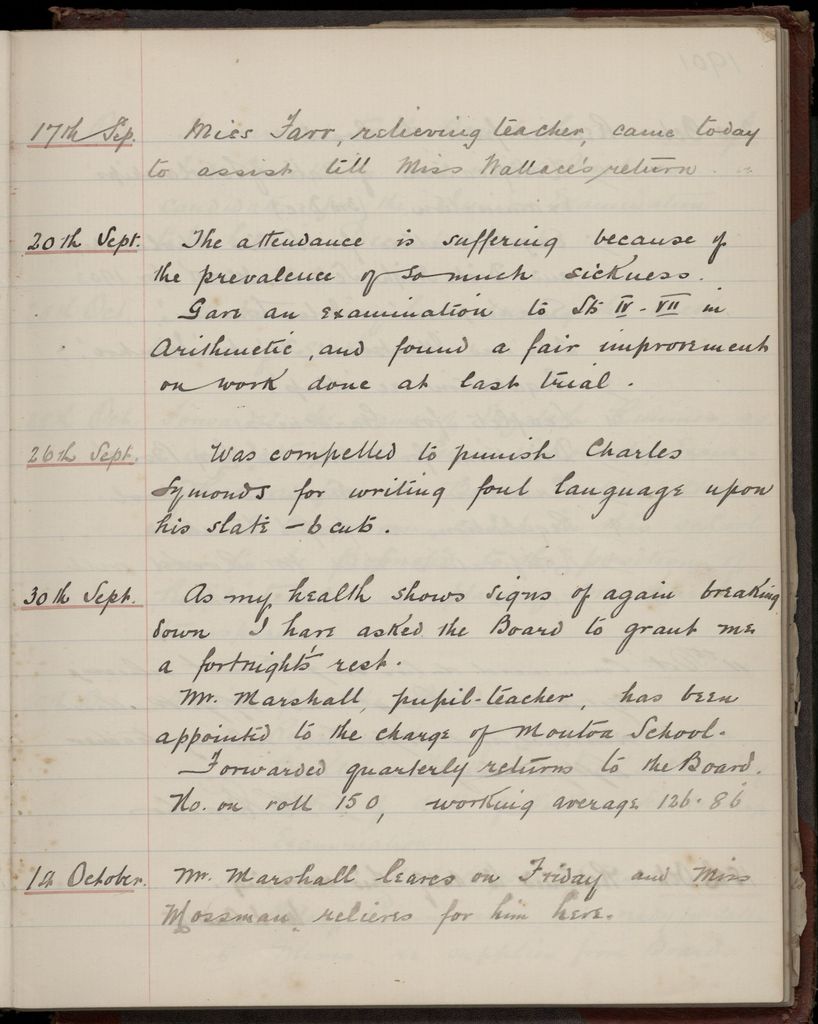 17th Sep. Miss Farr, relieving teacher, came today
to assist till Miss Wallace's return.
20th Sept. The attendance is suffering because of
the prevalence of so much sickness.
Gave an examination to Sts IV - VII in
Arithmetic, and found a fair improvement
on work done at last trial.
26th Sept. Was compelled to punish Charles
Symonds for writing foul language upon
his slate – 6 cuts.
30th Sept. As my health shows signs of again breaking
down I have asked the Board to grant me
a fortnight's rest.
Mr. Marshall, pupil-teacher, has been
appointed to the charge of Moutoa School.
Forwarded quarterly returns to the Board.
No. on roll 150, working average 126.86
1st October. Mr. Marshall leaves on Friday and Miss
Mossman relieves for him here.